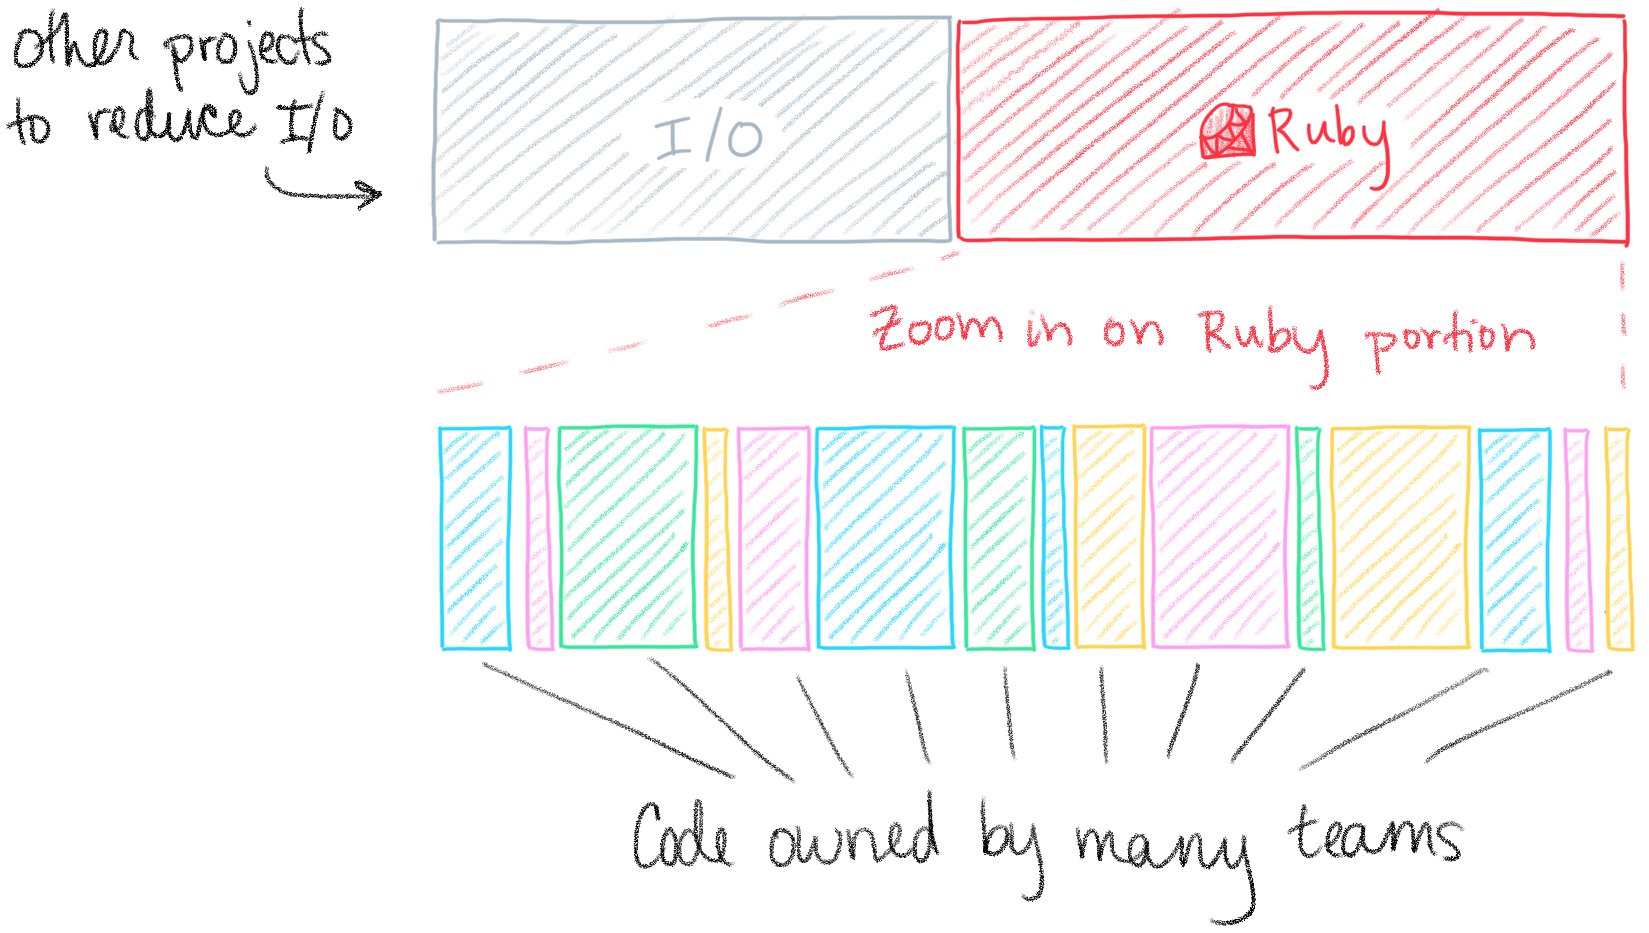 other projects
to reduce I/O
I/O
Ruby
Zoom in on Ruby portion
Code owned by many teams